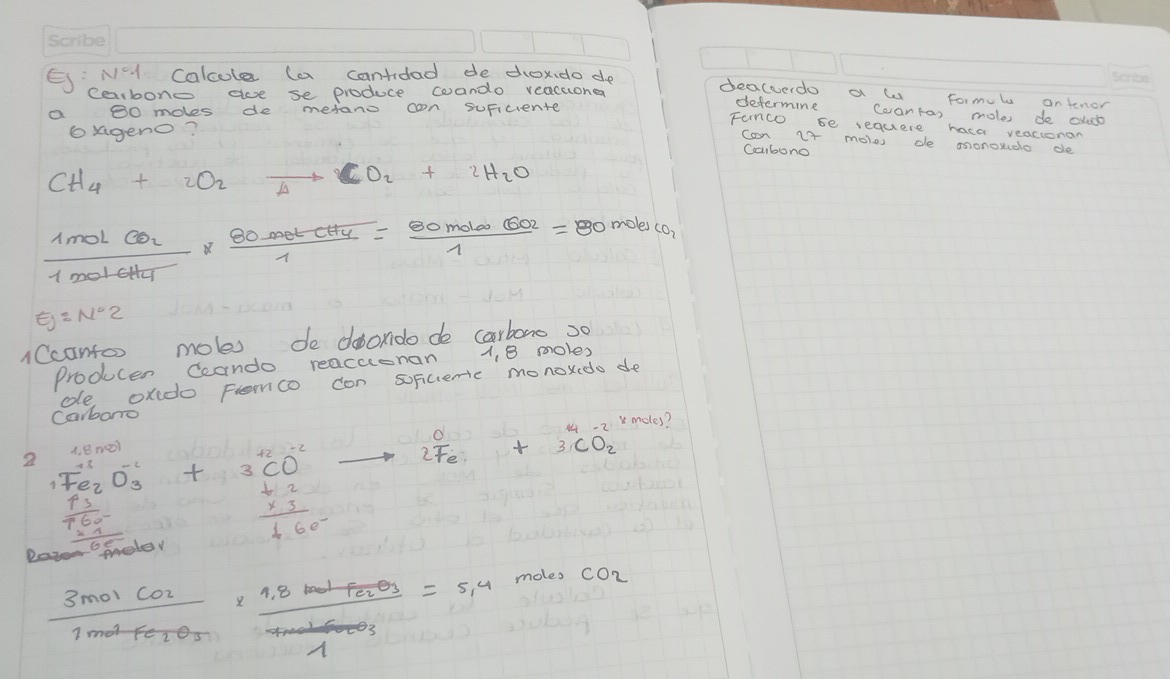 Scribe
Ej: Nº1 Calcula la cantidad de dioxido de
Carbono que se produce cuando reacciona
a 80 moles de metano con suficiente
Oxigeno?
CH4 + 2O2 →Δ CO2 + 2H2O
1mol CO2 / 1 mol CH4 x 80 mol CH4 / 1 = 80 moles CO2 / 1 = 80 moles CO2
Ej = Nº2
1 Cuantos moles de dioxido de carbono so
Producen Cuando reaccionan 1,8 moles
de oxido Ferrico con suficiente monoxido de
Carbono
1,8 mol +3 -2 +2 -2 0 +4 -2 x moles?
2 1Fe2O3 + 3CO → 2Fe + 3CO2
↑3 ↓ 2
↑6e- x 3
x 1 ↓ 6e-
6e-
Razon molar
3mol CO2 / 1 mol Fe2O3 x 1,8 mol Fe2O3 / 1 = 5,4 moles CO2
Scribe
deacuerdo a la Formula anterior
determine Cuantas moles de oxido
Ferrico se requiere haca reaccionan
Con 27 moles de monoxido de
Carbono